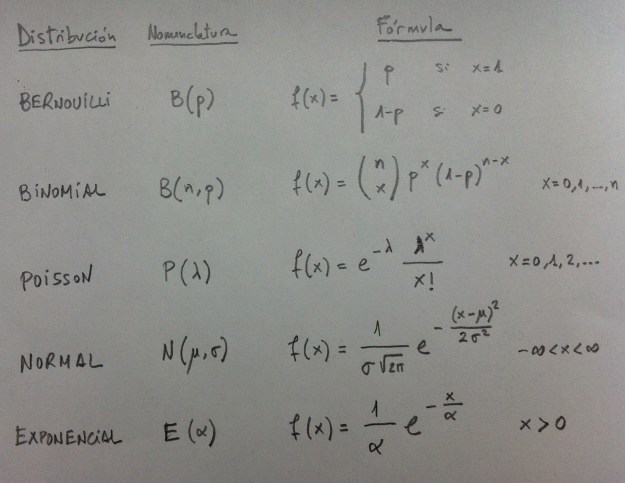 Distribución Nomenclatura Fórmula
BERNOUILLI B(p) f(x) = { p si x=1
1-p si x=0
BINOMIAL B(n,p) f(x) = (n x) p^x (1-p)^n-x x=0,1,...,n
POISSON P(λ) f(x) = e^-λ λ^x/x! x=0,1,2,...
NORMAL N(μ,σ) f(x) = 1/σ√2π e^-(x-μ)²/2σ² -∞<x<∞
EXPONENCIAL E(α) f(x) = 1/α e^-x/α x>0